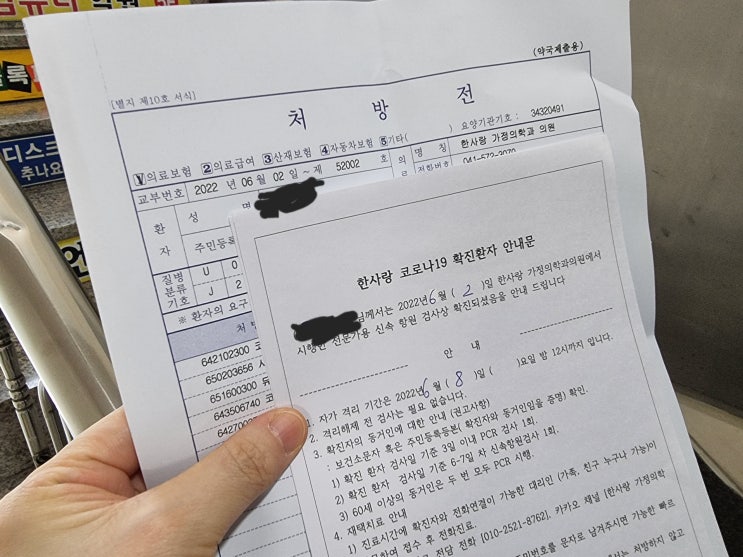 (약국제출용)
[별지 제10호 서식]
처 방 전
1의료보험 2의료급여 3산재보험 4자동차보험 5기타( ) 요양기관기호 : 34320491
교부번호 2022 년 06 월 02 일 ~ 제 52002 호
의 명 칭 한사랑 가정의학과 의원
전화번호 041-572-2070
환 성 명
자 주민등록
질병 U 0
분류
기호 J 2
※ 환자의 요구
처
642102300 코
650203656 시
651600300 듀
643506740 코
642700
한사랑 코로나19 확진환자 안내문
님께서는 2022년 6월 ( 2 )일 한사랑 가정의학과의원에서
시행한 전문가용 신속 항원 검사상 확진되셨음을 안내 드립니다
안 내
1. 자가 격리 기간은 2022년 6 월 ( 8 )일 ( )요일 밤 12시까지 입니다.
2. 격리해제 전 검사는 필요 없습니다.
3. 확진자의 동거인에 대한 안내 (권고사항)
: 보건소문자 혹은 주민등록등본( 확진자와 동거인임을 증명) 확인.
1) 확진 환자 검사일 기준 3일 이내 PCR 검사 1회.
2) 확진 환자 검사일 기준 6-7일 차 신속항원검사 1회.
3) 60세 이상의 동거인은 두 번 모두 PCR 시행.
4. 재택치료 안내
1) 진료시간에 확진자와 전화연결이 가능한 대리인 (가족, 친구 누구나 가능)이
하여 접수 후 전화진료.
전담 전화 [010-2521-8762], 카카오 채널 [한사랑 가정의학
민번호를 문자로 남겨주시면 가능한 빠르
처방하지 않고
디스크
추나요
언